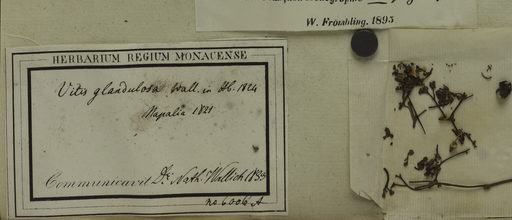 W. Froembling. 1895
HERBARIUM REGIUM MONACENSE
Vitis glandulosa Wall. in Hb. 1824
Napalia 1821
Communicavit Dr. Nath. Wallich 183
no. 6006 A